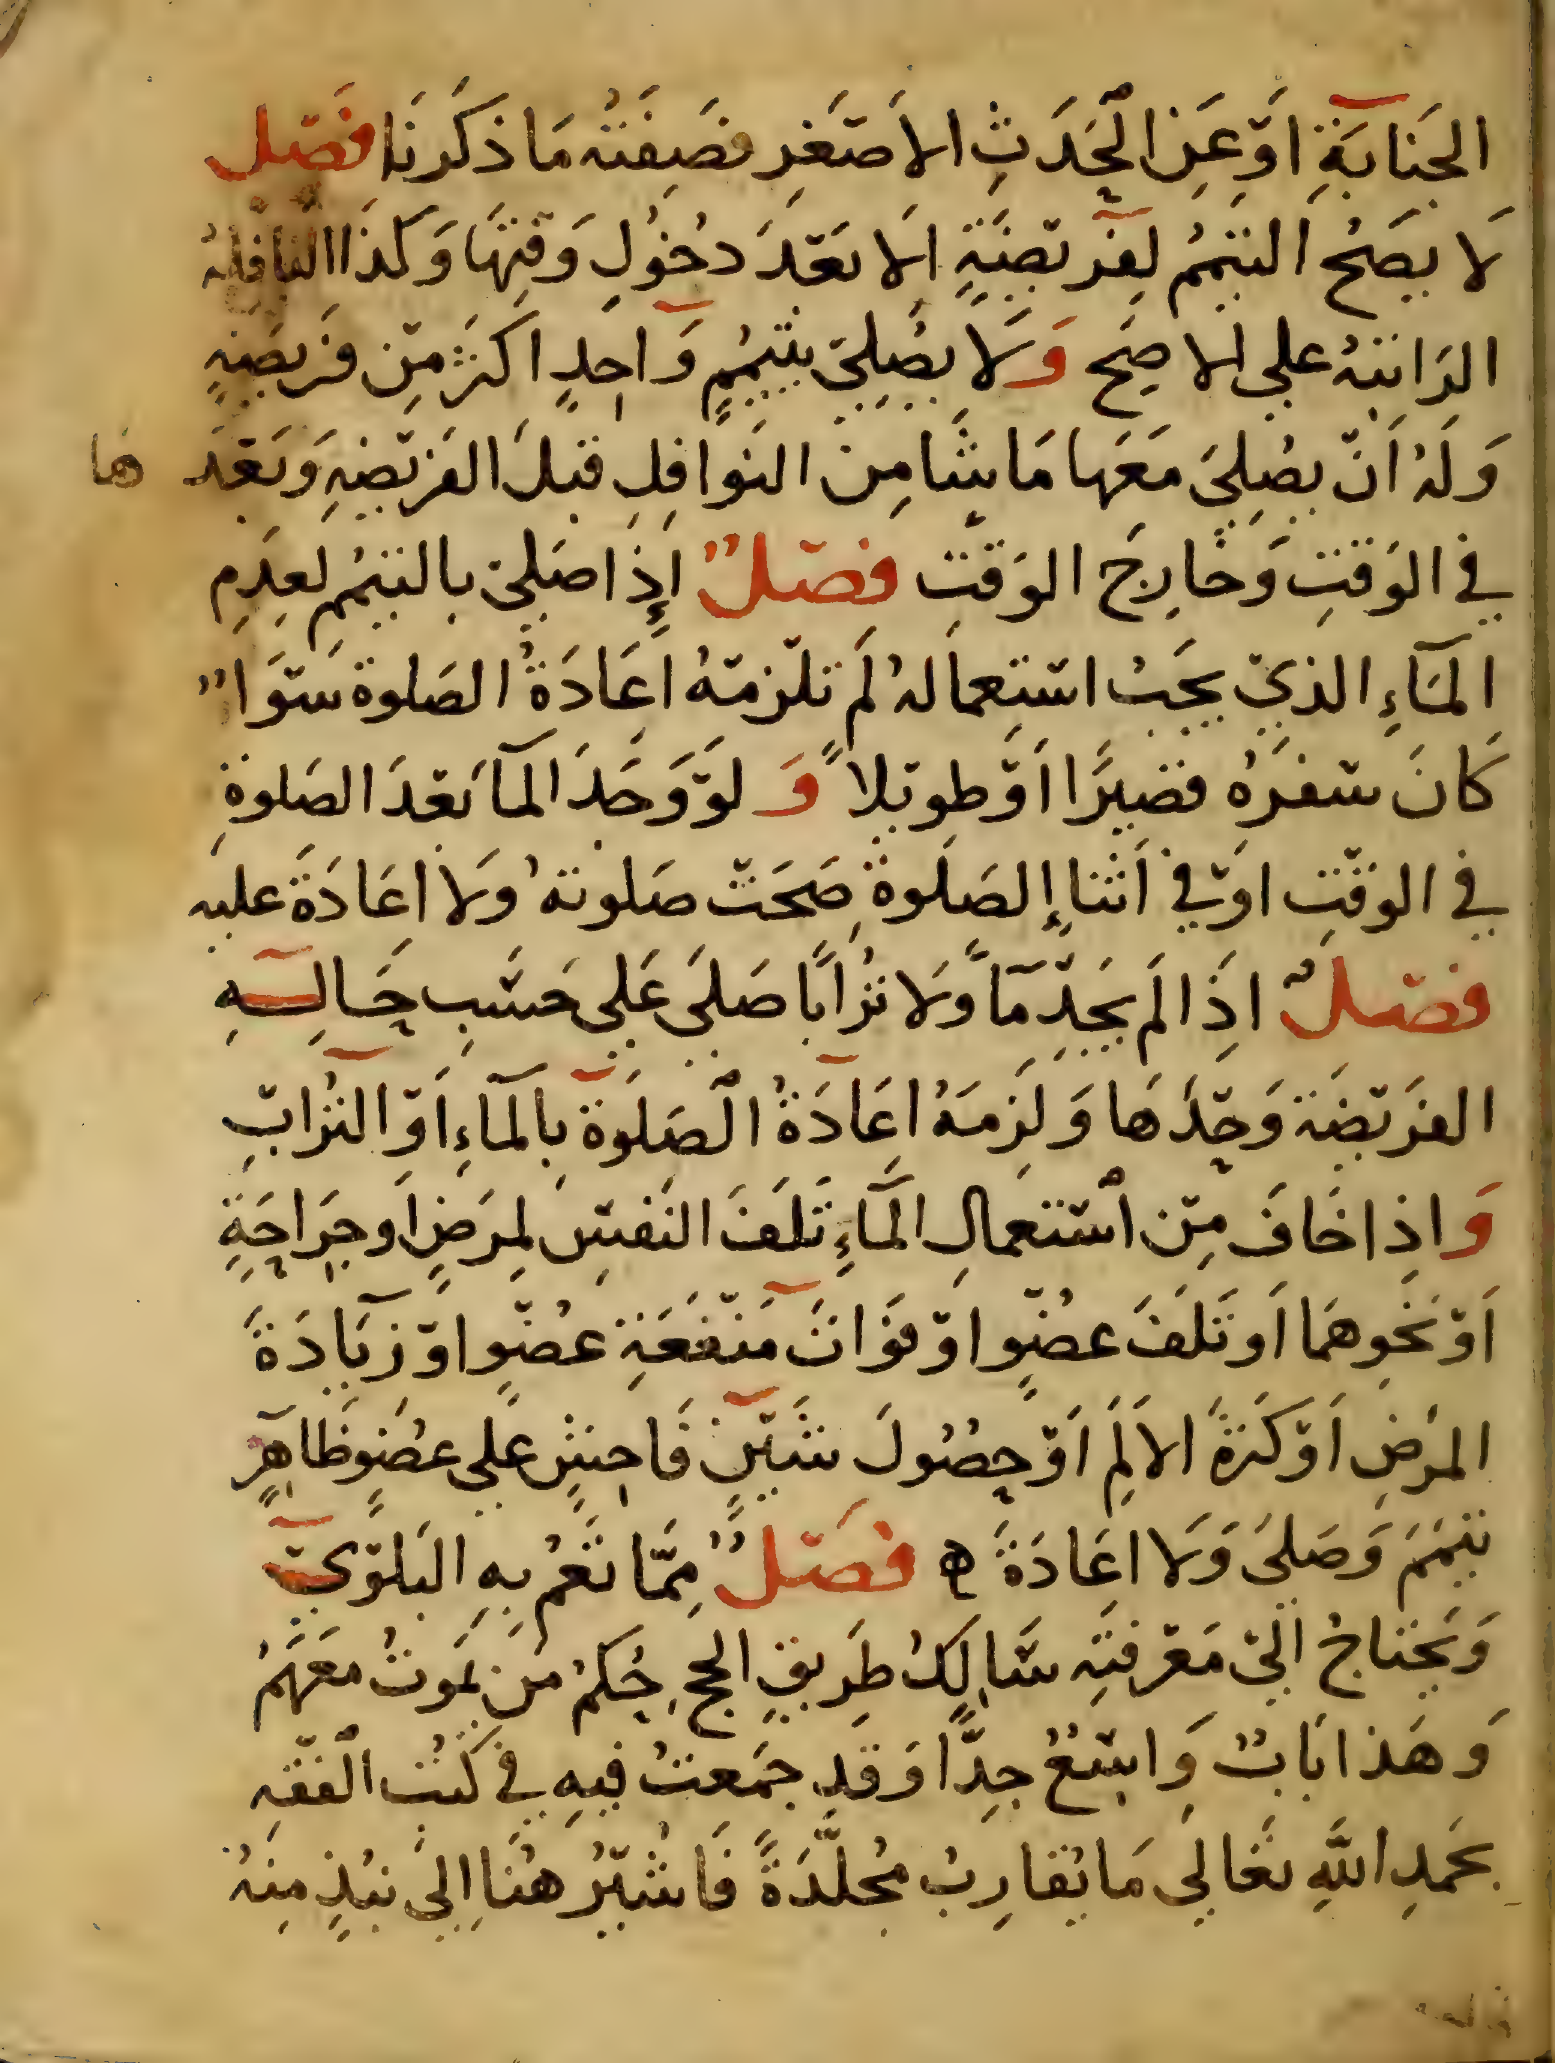 الجَنَابَةِ أَوْ عَنِ الْحَدَثِ الاَصْغَرِ فَصِفَتُه مَا ذَكَرنَا فَصْل
لَا يصَحُ التيمُم لِفَريْضَةٍ الَا بَعْدَ دخُولِ وَقتِهَا وَكذَا النافِلهُ
الرَاتبَهُ علي الاصِح وَلَا يصَلِي بتيمُمٍ وَاحِدٍ اكثرَ مِن فرَيضَةٍ
وَلَهُ اَنْ يصَلِيَ مَعَها مَا يشَا مِنَ النَوافِلِ قبلَ الفَريْضَهِ وَبَعْدَها
في الوَقتِ وَخَارِجَ الوَقْتِ فصْلٌ إِذَا صَلي بالتيمُمِ لعِدَمِ
المَآءِ الذِيْ يجَبُ اسْتِعمالهُ لَم تلْزمْهُ اعَادَةُ الصَلوة سَوَاءٌ
كَانَ سَفرُهُ قصَيرًا أَوْ طويْلاً وَلَوْ وَجَدَ المآ بَعْدَ الصَلوةِ
في الوَقْتِ اوْ في اَثنَاءِ الصَلَوة صَحَتْ صَلوتهُ وَلا اعَادَةَ عليه
فصْلٌ اذَا لَم يجَدْ مَآءً وَلَا تُرَابًا صَلَى عَلي حَسَبِ حَالِهِ
الفَريْضَة وَحْدَهَا وَلَزِمَهُ اعَادَةُ الصَلَوة بِالمآءِ اَوْ التُرابِ
وَاذِا خَافَ مِن اسْتعمالِ المَآءِ تَلَفَ النَفسِ لِمرَضٍ اَو جِرَاحَةٍ
اَوْ نَحَوِهمَا اَو تَلَفَ عضُوٍ اوْ فَوَاتَ مَنْفَعَةِ عضُوٍ اوْ زيَادَةَ
المرَضِ اَوْ كَثرَةَ الاَلَمِ اَوْ حصُولَ شَيْنٍ فَاحِشٍ علي عضُوٍ ظَاهِرٍ
تيَمَمَ وَصَلىَ وَلَا اعَادَةَ ه فصَلٌ مِمَّا تَعُم بِهِ البَلوْيَ
وَيحَتاجُ اليْ مَعْرفَتِه سَالِكُ طَرِيقِ الحج حُكمُ مَن يمَوتُ مَعَهَمُ
وَهَذا بَابٌ وَاسِعٌ جِدًّا وَقدِ جمَعتُ فيهِ في كتُبِ الفقْه
بحَمدِ اللَّهِ تعَالَي مَا يُقارِبُ مُجلَّدَةً فَاشيرُ هُنَا اِلىَ نبُذٍ مِنهُ